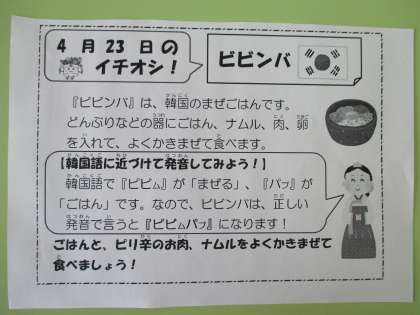 4月23日の
イチオシ！
ビビンバ
『ビビンバ』は、韓国のまぜごはんです。
どんぶりなどの器にごはん、ナムル、肉、卵
を入れて、よくかきまぜて食べます。
【韓国語に近づけて発音してみよう！】
韓国語で『ビビム』が「まぜる」、『パプ』が
「ごはん」です。なので、ビビンバは、正しい
発音で言うと『ビビムパプ』になります！
ごはんと、ピリ辛のお肉、ナムルをよくかきまぜて
食べましょう！